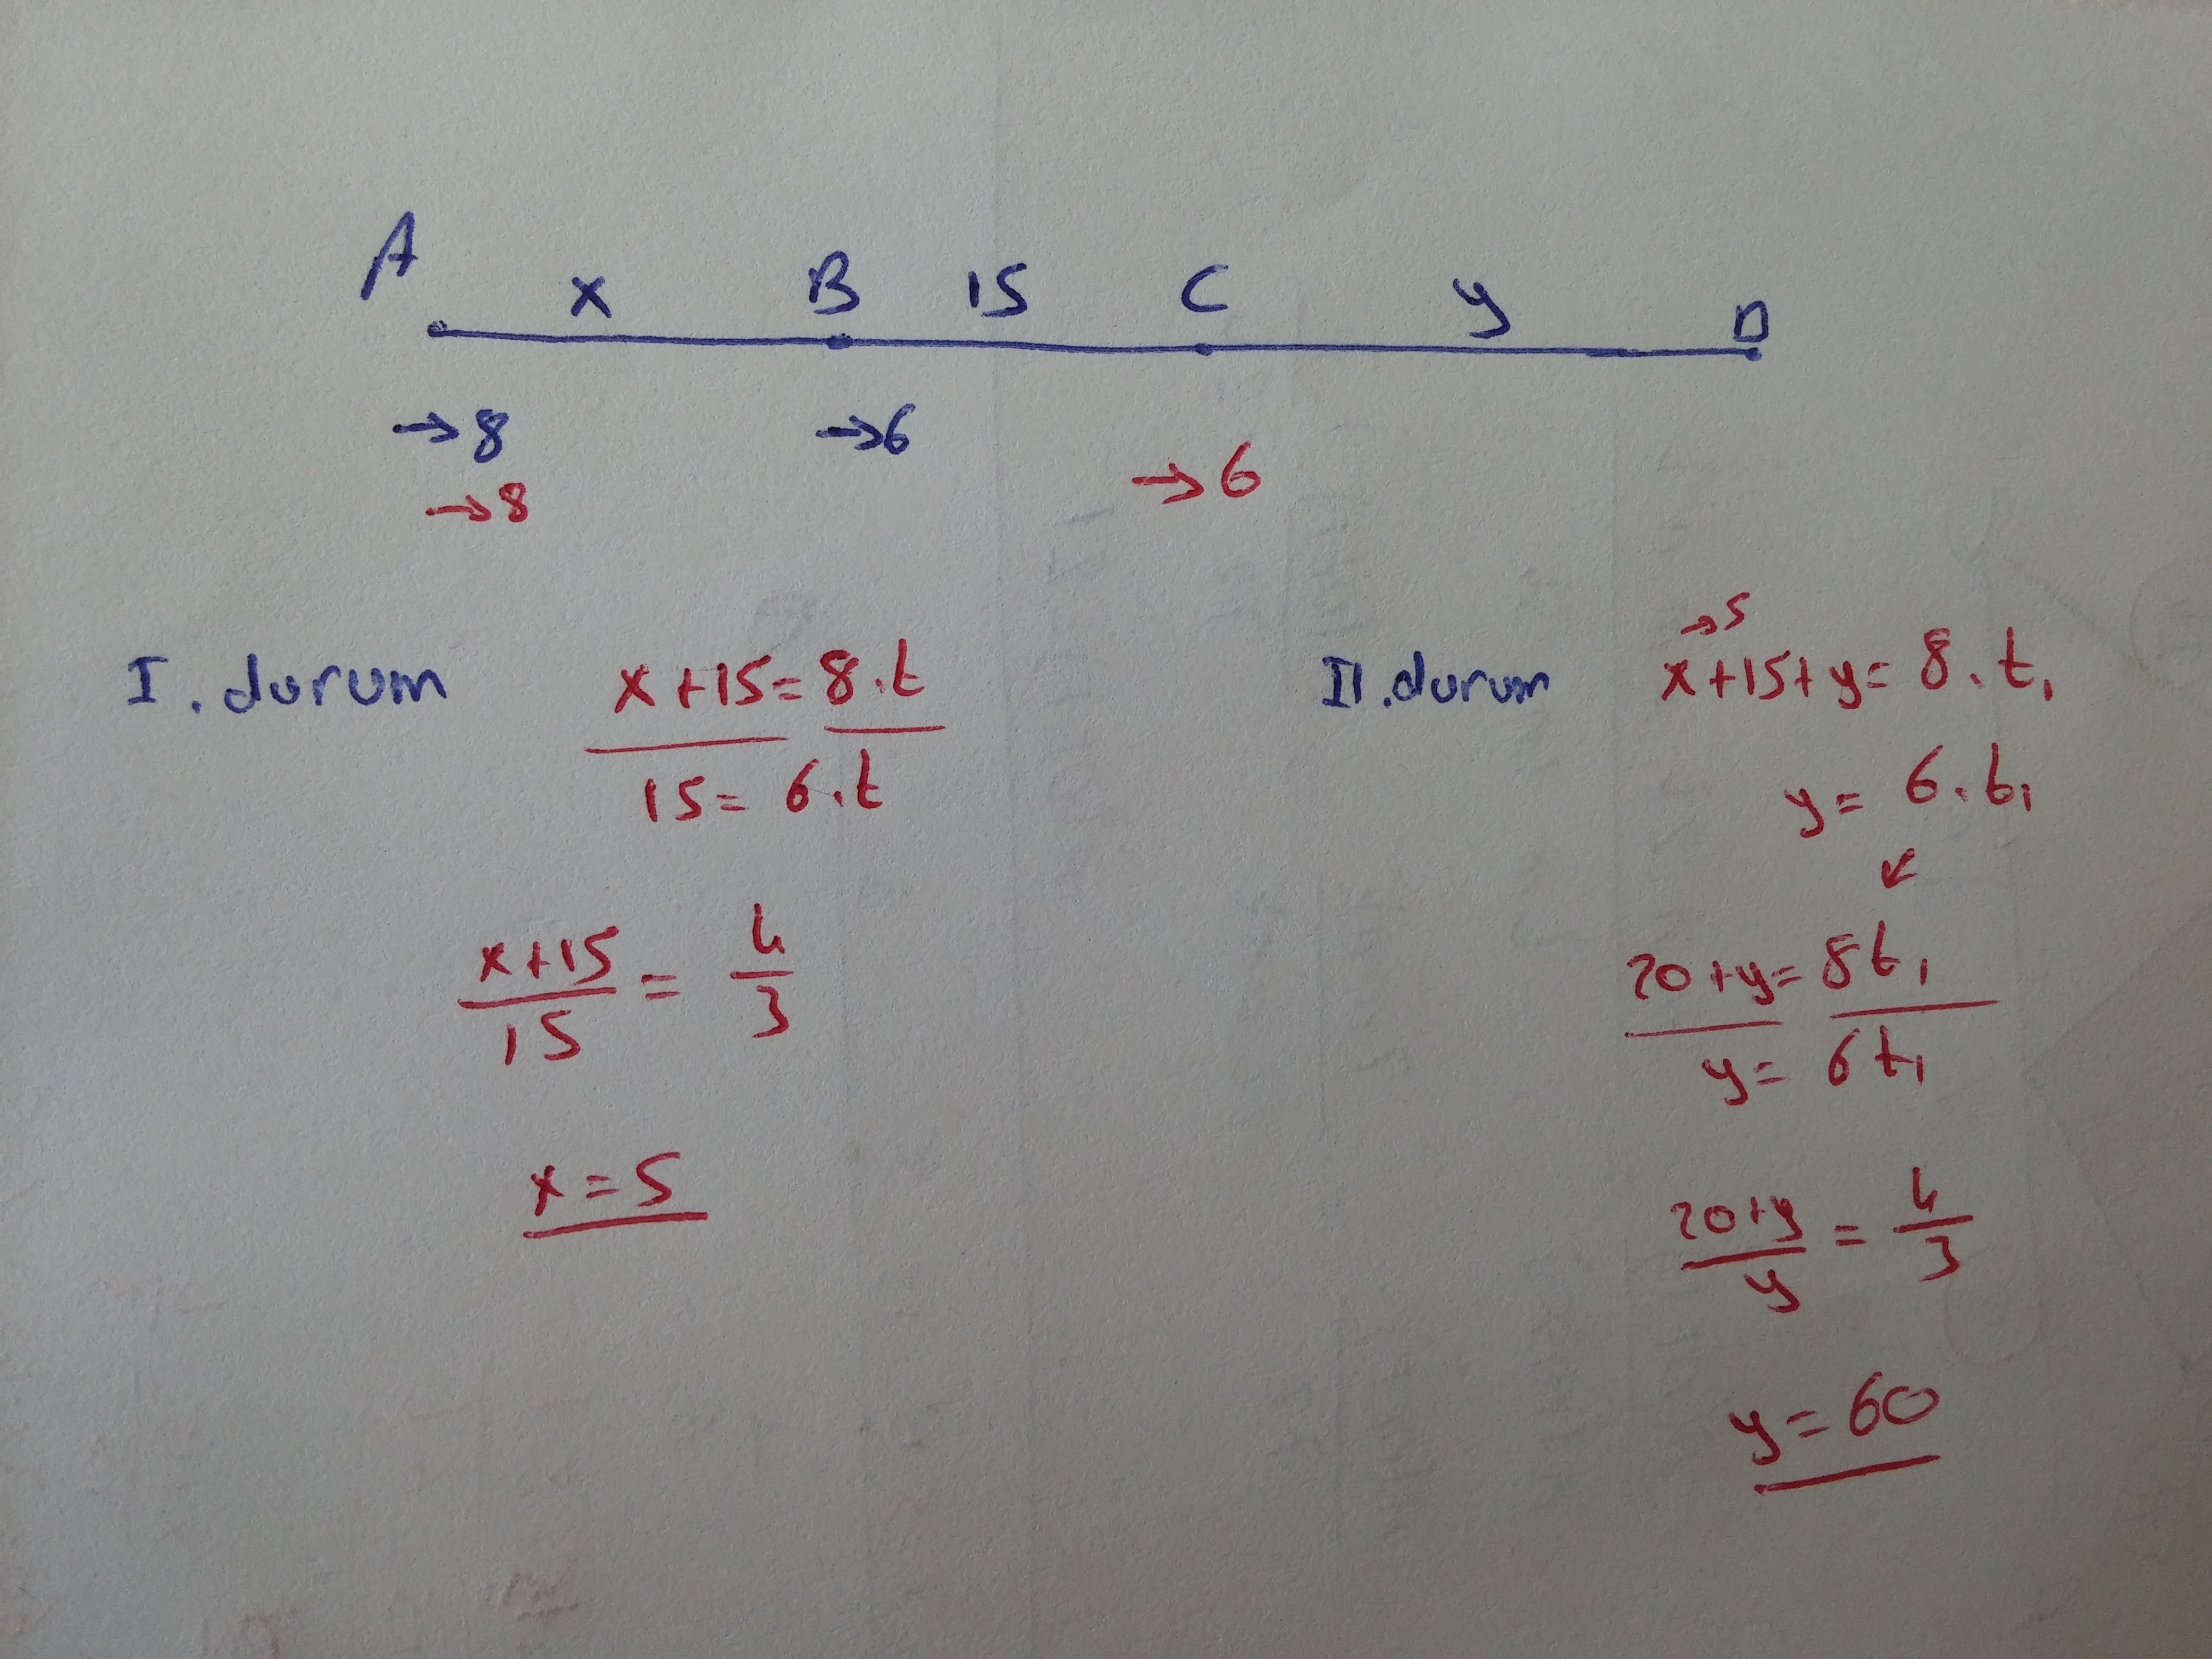 A x B 15 C y D
→8 →6
→8 →6
I. durum
x+15=8.t
15=6.t
x+15/15 = 4/3
x=5
II. durum
→5
x+15+y=8.t₁
y=6.t₁
↙
20+y=8t₁
y=6t₁
20+y/y = 4/3
y=60